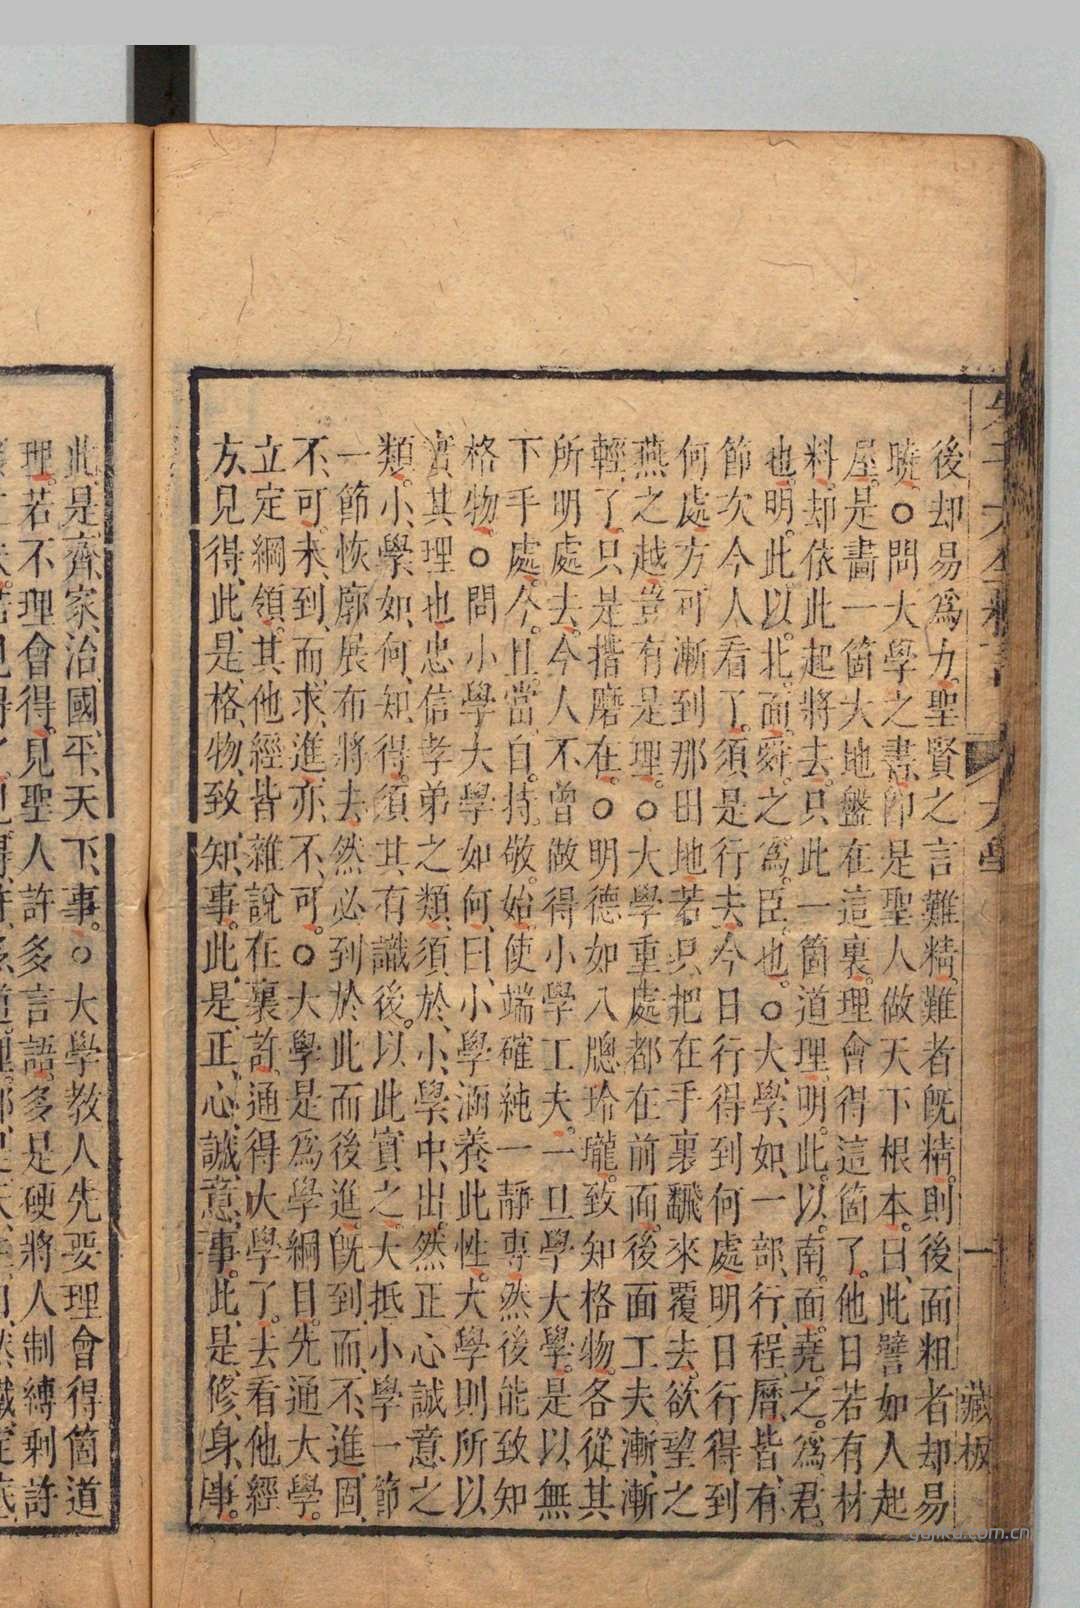 後却易爲力。聖賢之言難精。難者既精。則後面粗者却易
曉。○問大學之書。卽是聖人做天下根本。曰、此譬如人起
屋。是畫一箇大地盤在這裏。理會得這箇了。他日若有材
料。却依此起將去。只此一箇道理。明此以南面。堯之爲君
也。明此以北面。舜之爲臣也。○大學如一部行程曆。皆有
節次。今人看了。須是行去。今日行得到何處。明日行得到
何處。方可漸到那田地。若只把在手裏翻來覆去。欲望之
燕之越。豈有是理。○大學重處。都在前面。後面工夫漸漸
輕了。只是揩磨在。○明德如八牕玲瓏。致知格物。各從其
所明處去。今人不曾做得小學工夫。一旦學大學。是以無
下手處。今且當自持敬始。使端確純一靜專。然後能致知
格物。○問小學大學如何。曰、小學涵養此性。大學則所以
實其理也。忠信孝弟之類。須於小學中出。然正心誠意之
類。小學如何知得。須其有識後。以此實之。大抵小學一節
一節恢廓展布將去。然必到於此而後進。既到而不進固
不可。未到而求進亦不可。○大學是爲學綱目。先通大學。
立定綱領。其他經皆雜說在裏許。通得大學了。去看他經
方見得此是格物致知事。此是正心誠意事。此是修身事。
此是齊家治國平天下事。○大學教人先要理會得箇道
理。若不理會得。見聖人許多言語。多是硬將人制縛。剩許
大學
一
藏板
gujiku.com.cn